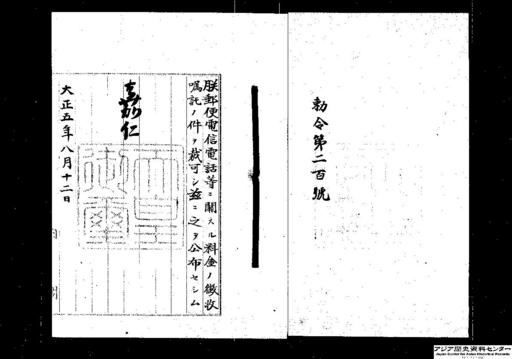 勅令第二百號
朕郵便電信電話等ニ關スル料金ノ徴收
囑託ノ件ヲ裁可シ茲ニ之ヲ公布セシム
嘉仁
大正五年八月十二日
アジア歴史資料センター
Japan Center for Asian Historical Records